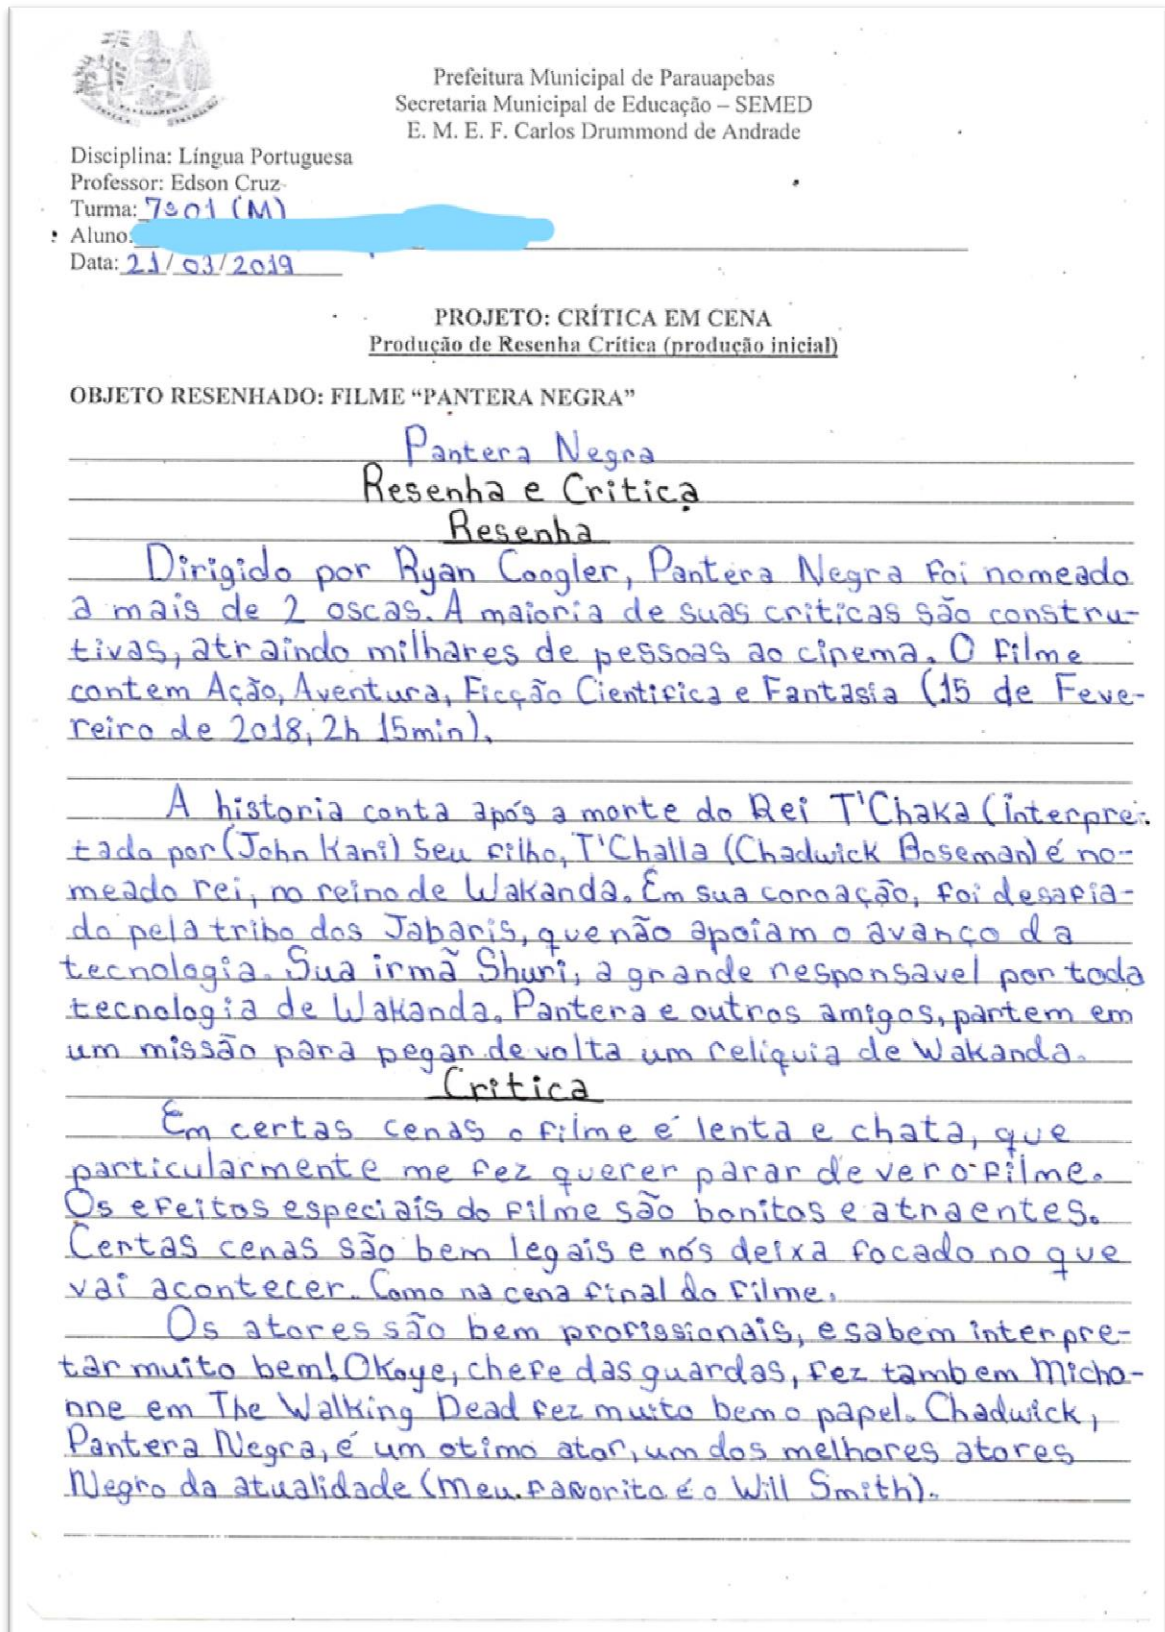 Prefeitura Municipal de Parauapebas
Secretaria Municipal de Educação – SEMED
E. M. E. F. Carlos Drummond de Andrade
Disciplina: Língua Portuguesa
Professor: Edson Cruz
Turma: 7º01 (M)
Aluno:
Data: 21/03/2019
PROJETO: CRÍTICA EM CENA
Produção de Resenha Crítica (produção inicial)
OBJETO RESENHADO: FILME “PANTERA NEGRA”
Pantera Negra
Resenha e Critica
Resenha
Dirigido por Ryan Coogler, Pantera Negra foi nomeado
a mais de 2 oscas. A maioria de suas criticas são constru-
tivas, atraindo milhares de pessoas ao cinema. O filme
contem Ação, Aventura, Ficção Cientifica e Fantasia (15 de Feve-
reiro de 2018, 2h 15min).
A historia conta após a morte do Rei T'Chaka (interpre-
tado por (John Kani) Seu filho, T'Challa (Chadwick Boseman) é no-
meado rei, no reino de Wakanda. Em sua coroação, foi desafia-
do pela tribo dos Jabaris, que não apoiam o avanço da
tecnologia. Sua irmã Shuri, a grande responsavel por toda
tecnologia de Wakanda. Pantera e outros amigos, partem em
um missão para pegar de volta um reliquia de Wakanda.
Critica
Em certas cenas o filme é lenta e chata, que
particularmente me fez querer parar de ver o filme.
Os efeitos especiais do filme são bonitos e atraentes.
Certas cenas são bem legais e nós deixa focado no que
vai acontecer. Como na cena final do filme.
Os atores são bem profissionais, e sabem interpre-
tar muito bem! Okoye, chefe das guardas, fez tambem Micho-
nne em The Walking Dead fez muito bem o papel. Chadwick,
Pantera Negra, é um otimo ator, um dos melhores atores
Negro da atualidade (meu favorito é o Will Smith).